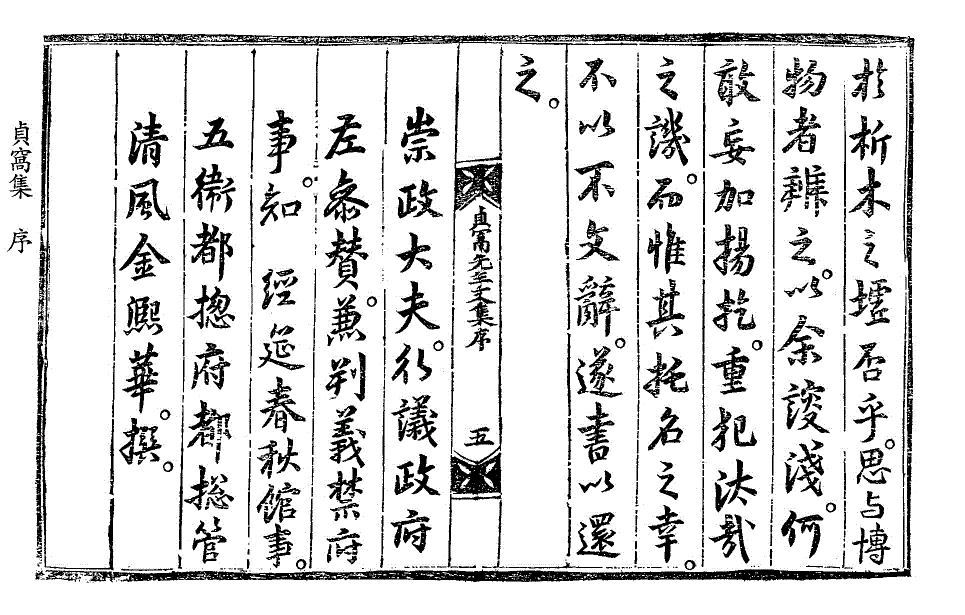 扵析木之墟否乎。思与博
物者辨之。以余謏淺。何
敢妄加揚扢。重犯汰哉
之譏。而惟其托名之幸。
不以不文辭。遂書以還
之。
貞窩先生文集序 五
崇政大夫。行議政府
左叅贊。兼判義禁府
事。知 經筵春秋館事。
五衛都摠府都摠管
清風金熙華撰。
貞窩集 序